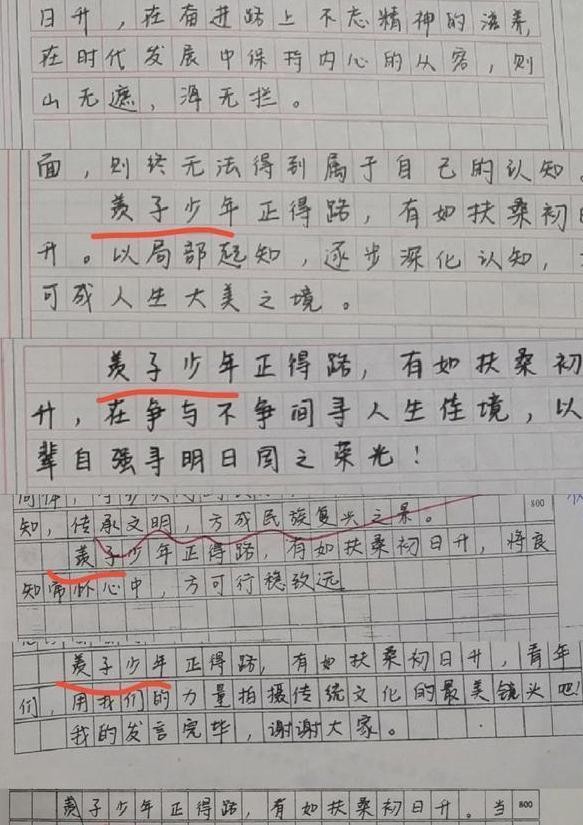 日升，在奋进路上不忘精神的滋养，
在时代发展中保持内心的从容，则
山无遮，海无拦。
面，则终无法得到属于自己的认知。
羡子少年正得路，有如扶桑初日
升。以局部起知，逐步深化认知，
可成人生大美之境。
羡子少年正得路，有如扶桑初
升，在争与不争间寻人生佳境，以
辈自强寻明日国之荣光！
知，传承文明，方成民族复兴之果。
800
羡子少年正得路，有如扶桑初日升，将良
知常怀心中，方可行稳致远
羡子少年正得路，有如扶桑初日升，青年
们，用我们的力量拍摄传统文化的最美镜头吧！
我的发言完毕，谢谢大家。
羡子少年正得路，有如扶桑初日升。当
800